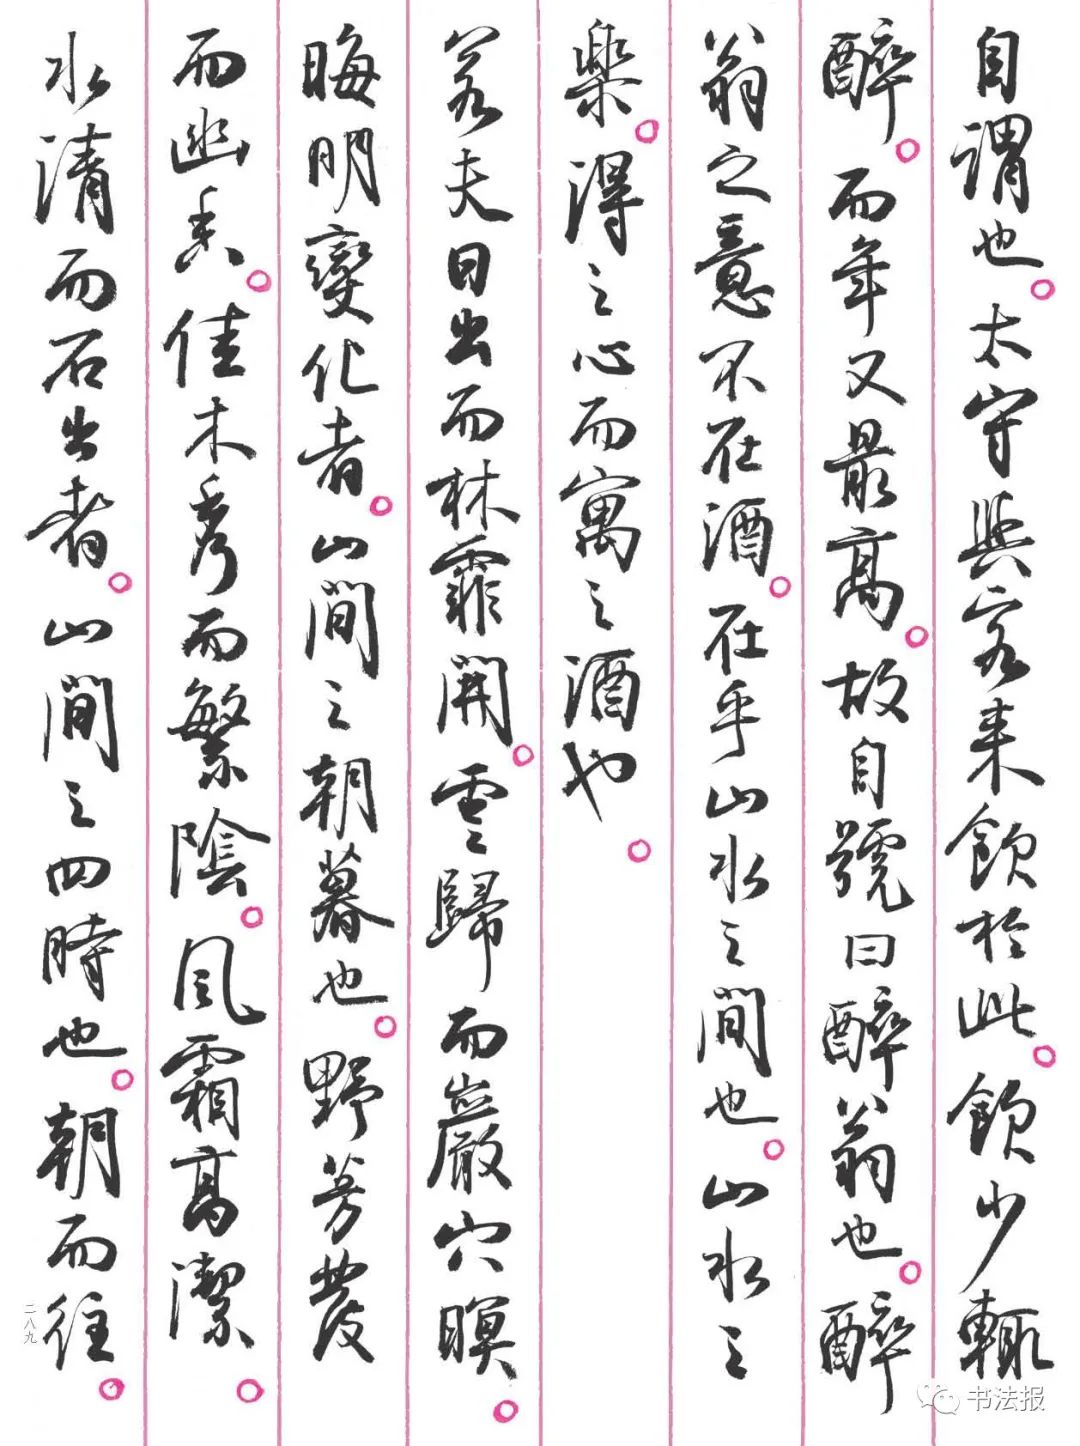 自謂也。太守與客来飲於此。飲少輒
醉。而年又最高。故自號曰醉翁也。醉
翁之意不在酒。在乎山水之間也。山水之
樂。得之心而寓之酒也。
若夫日出而林霏開。雲歸而巖穴暝。
晦明變化者。山間之朝暮也。野芳發
而幽香。佳木秀而繁陰。風霜高潔。
水清而石出者。山間之四時也。朝而往。
二八九
书法报